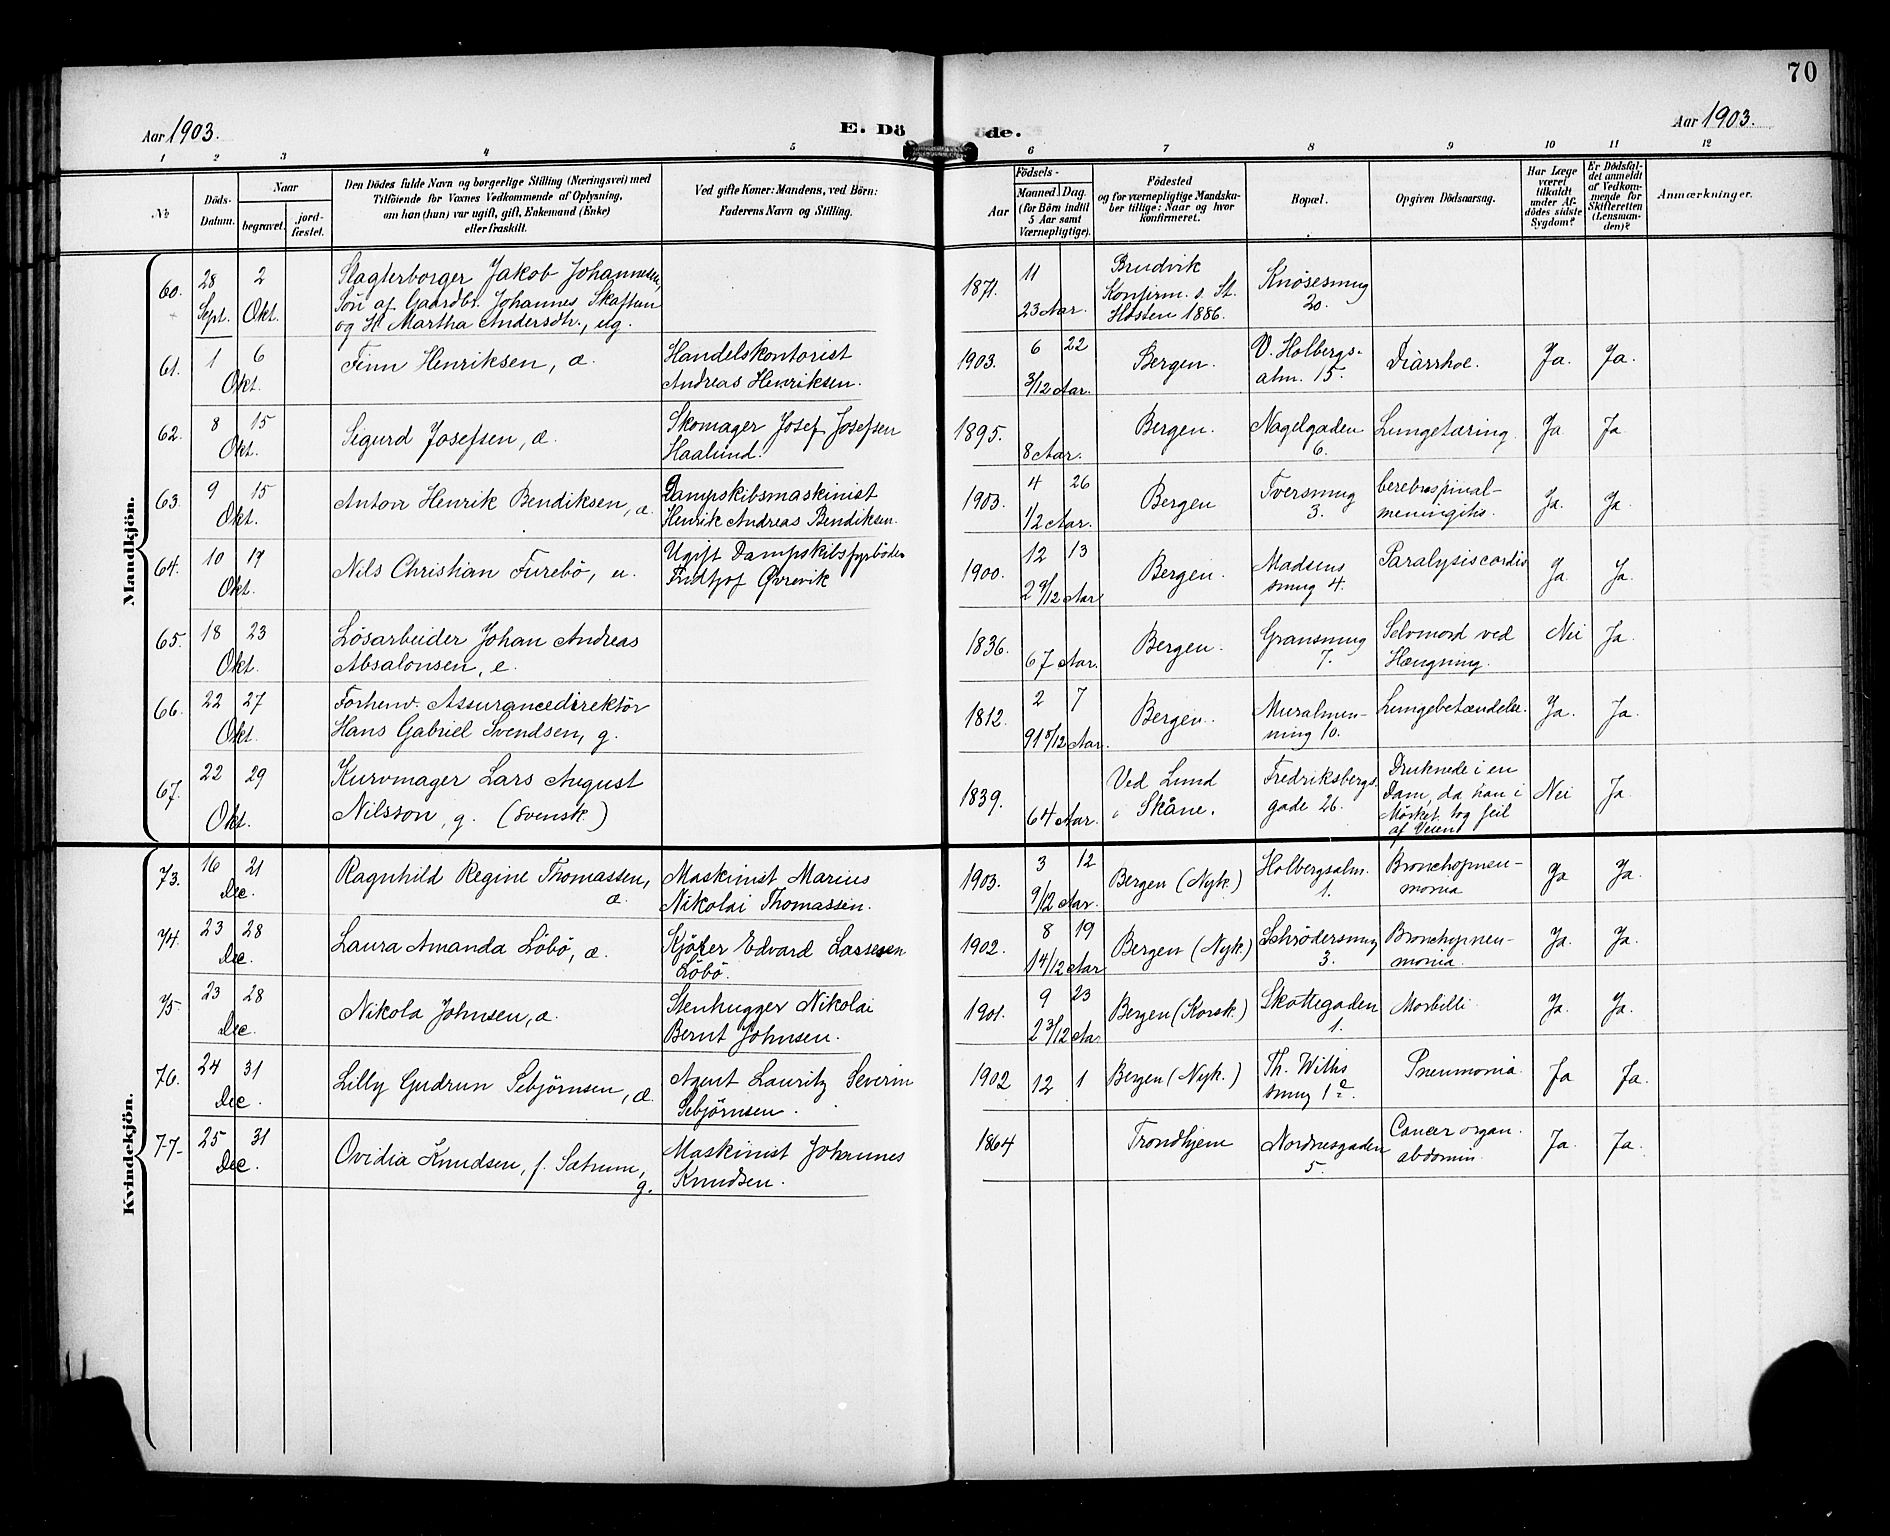 70
Aar 1903.
E. Döde.
Aar 1903.
1 2 3 4 5 6 7 8 9 10 11 12
№
Döds-Datum.
Naar
begravet.
jord-fæstet.
Den Dödes fulde Navn og borgerlige Stilling (Næringsvei) med
Tilföiende for Voxnes Vedkommende af Oplysning,
om han (hun) var ugift, gift, Enkemand (Enke)
eller fraskilt.
Ved gifte Koner: Mandens, ved Börn:
Faderens Navn og Stilling.
Födsels-
Aar
Maaned Dag
(for Börn indtil
5 Aar samt
Værnepligtige).
Födested
og for værnepligtige Mandskaber tillige: Naar og hvor
konfirmeret.
Bopæl.
Opgiven Dödsaarsag.
Har Læge
været
tilkaldt
under Afdödes sidste
Sygdom?
Er Dödsfaldet anmeldt
af Vedkommende for
Skifteretten
(Lensmanden)?
Anmærkninger.
Mandkjön.
60. 28 Sept. 2 Okt. Slagterborger Jakob Johannesen,
Sön af Gaardbr. Johannes Skaftun
og H. Martha Andersdtr., ug.
1871. 11 23 Aar. Brudvik
Konfirm. s. St.
Høsten 1886.
Knøsesmug
20.
61. 1 6 Okt. Finn Henriksen, æ. Handelskontorist
Andreas Henriksen.
1903. 6 22 3/12 Aar. Bergen. V. Holbergs-
alm. 15. Diarrhoe. Ja. Ja.
62. 8 15 Okt. Sigurd Josefsen, æ. Skomager Josef Josefsen
Haalund.
1895. 8 Aar. Bergen. Nagelgaden
6. Lungetæring. Ja Ja
63. 9 15 Okt. Anton Henrik Bendiksen, æ. Dampskibsmaskinist
Henrik Andreas Bendiksen.
1903. 4 26 1/2 Aar. Bergen Tversmug
3. Cerebrospinal-
meningitis. Ja. Ja.
64. 10 17 Okt. Nils Christian Furebö, u. Ugift Dampskibsfyrböder
Fridtjof Øvrevik
1900. 12 13 2 9/12 Aar Bergen. Madsens
smug 4. Paralysis cordis Ja Ja.
65. 18 23 Okt. Lösarbeider Johan Andreas
Absalonsen, e.
1836. 67 Aar. Bergen. Gransmug
7. Selvmord ved
Hængning. Nei Ja.
66. 22 27 Okt. Forhenv. Assurancedirektör
Hans Gabriel Svendsen, g.
1812. 2 7 91 8/12 Aar. Bergen. Muralmen-
ning 10. Lungebetændelse. Ja. Ja.
67. 22 29 Okt. Kurvmager Lars August
Nilsson, g. (svensk)
1839. 64 Aar. Ved Lund
i Skåne. Fredriksbergs
gade 26. Druknede i en
Dam, da han i
Mørket tog feil
af Veien Nei Ja.
Kvindekjön.
73. 16 21 Dec. Ragnhild Regine Thomassen,
æ. Maskinist Marius
Nikolai Thomassen.
1903. 3 12 9/12 Aar. Bergen (Nyk.) Holbergsalm.
1. Bronchopneu-
monia Ja Ja.
74. 23 28 Dec. Laura Amanda Löbö, æ. Kjører Edvard Lassesen
Löbö.
1902. 8 19 1 4/12 Aar Bergen (Nyk.) Schrödersmug
3. Bronchopneu-
monia. Ja. Ja.
75. 23 28 Dec. Nikola Johnsen, æ. Stenhugger Nikolai
Bernt Johnsen.
1901. 9 23 2 3/12 Aar Bergen (Korsk.) Skottegaden
1. Morbilli Ja. Ja.
76. 24 31 Dec. Lilly Gudrun Sebjörnsen, æ. Agent Lauritz Severin
Sebjörnsen.
1902 12 1 Bergen (Nyk.) Th. Withs
smug 1a. Pneumonia. Ja Ja.
77. 25 31 Dec. Ovidia Knudsen, f. Satrum,
g. Maskinist Johannes
Knudsen.
1864 Trondhjem Nordnesgaden
5. Cancer organ.
abdomin. Ja. Ja.